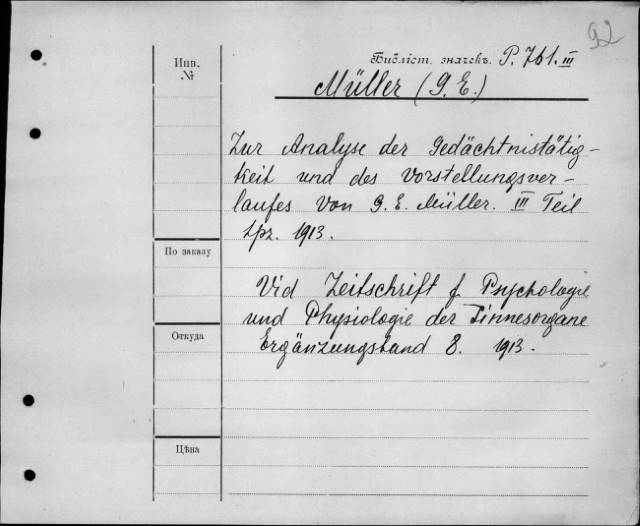 92
Инв.
№
Библіот. значекъ. P. 761. III
Müller (G. E.)
Zur Analyse der Gedächtnistätig-
keit und des Vorstellungsver-
laufes von G. E. Müller. III Teil
Lpz. 1913.
По заказу
Vid Zeitschrift f. Psychologie
und Physiologie der Sinnesorgane
Откуда
Ergänzungsband 8. 1913.
Цѣна